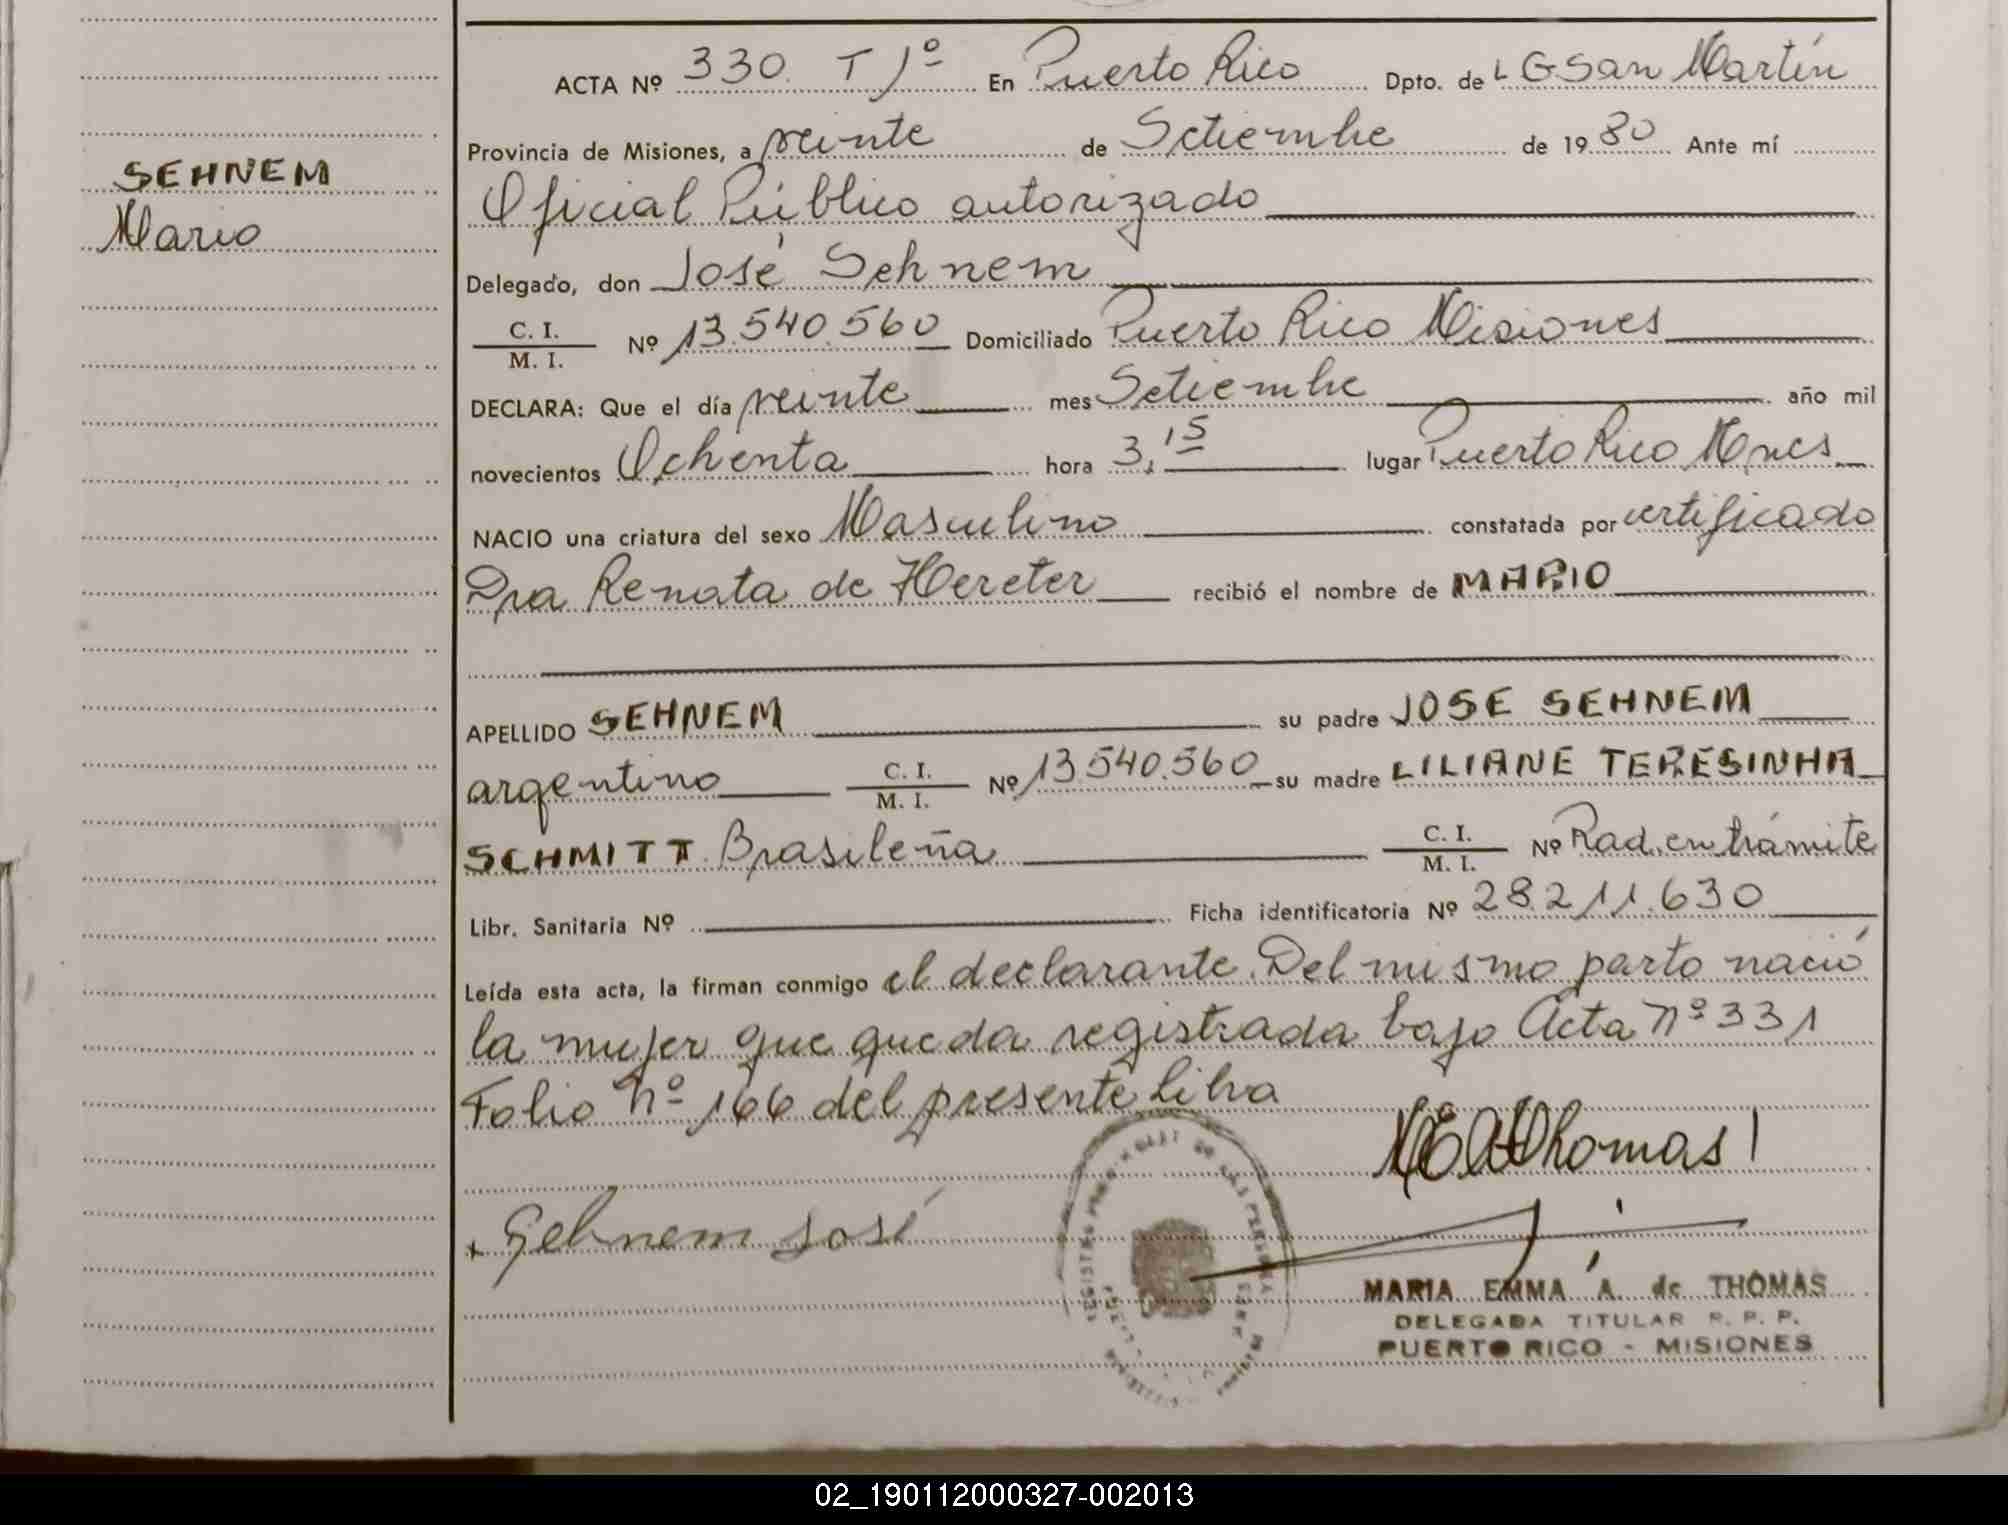 SEHNEM
Mario
ACTA Nº 330. T 1º En Puerto Rico Dpto. de L G San Martín
Provincia de Misiones, a veinte de Setiembre de 1980 Ante mí
Oficial Público autorizado
Delegado, don José Sehnem
C. I. / M. I. Nº 13.540.560 Domiciliado Puerto Rico Misiones
DECLARA: Que el día veinte mes Setiembre año mil
novecientos Ochenta hora 3,15 lugar Puerto Rico Mnes
NACIO una criatura del sexo Masculino constatada por certificado
Dra Renata de Hereter recibió el nombre de MARIO
APELLIDO SEHNEM su padre JOSE SEHNEM
argentino C. I. / M. I. Nº 13.540.560 su madre LILIANE TERESINHA
SCHMITT Brasileña C. I. / M. I. Nº Rad. en trámite
Libr. Sanitaria Nº Ficha identificatoria Nº 28.211.630
Leída esta acta, la firman conmigo el declarante. Del mismo parto nació
la mujer que queda registrada bajo Acta nº 331
Folio nº 166 del presente Libro
MEAThomas
+ Sehnem José
MARIA EMMA A. de THOMAS
DELEGADA TITULAR R. P. P.
PUERTO RICO - MISIONES
02_190112000327-002013